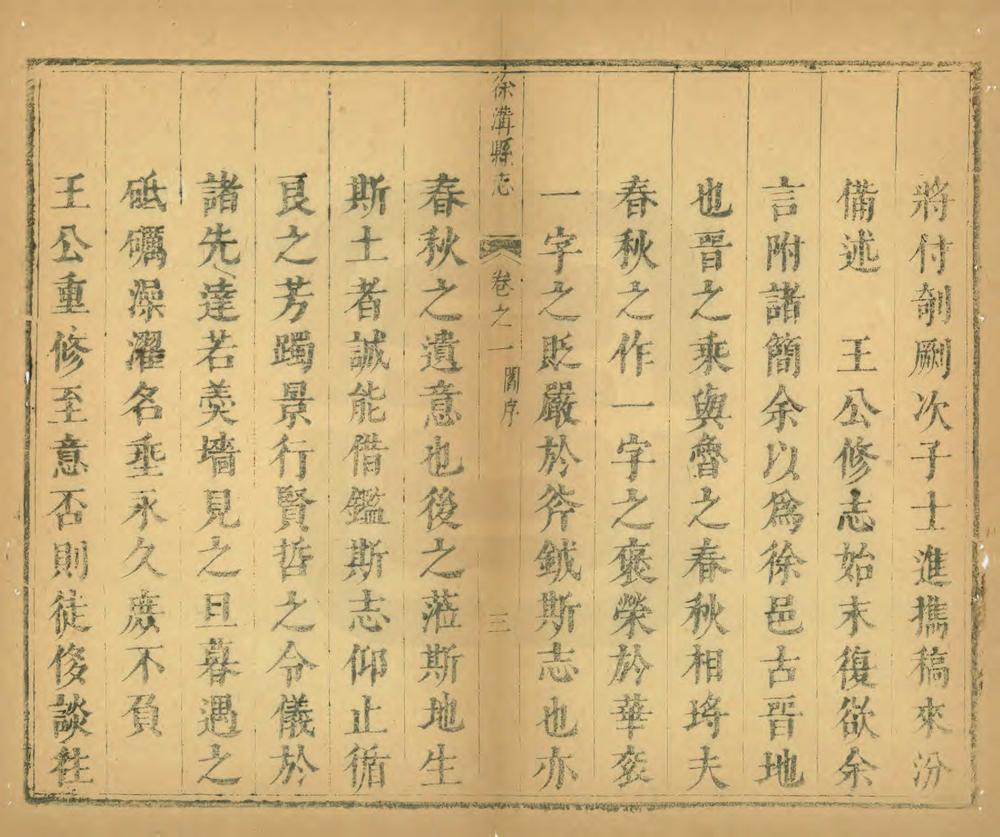 將付剞劂次子士進携稿來汾
備述　王公修志始末復欲余
言附諸簡余以爲徐邑古晋地
也晋之乘與魯之春秋相埓夫
春秋之作一字之褒榮於華衮
一字之貶嚴於斧鉞斯志也亦
徐溝縣志
卷之一
閻序
三
春秋之遺意也後之蒞斯地生
斯土者誠能借鑑斯志仰止循
良之芳躅景行賢哲之令儀於
諸先達若羹墻見之旦暮遇之
砥礪澡濯名垂永久庻不負
王公重修至意否則徒侈談往